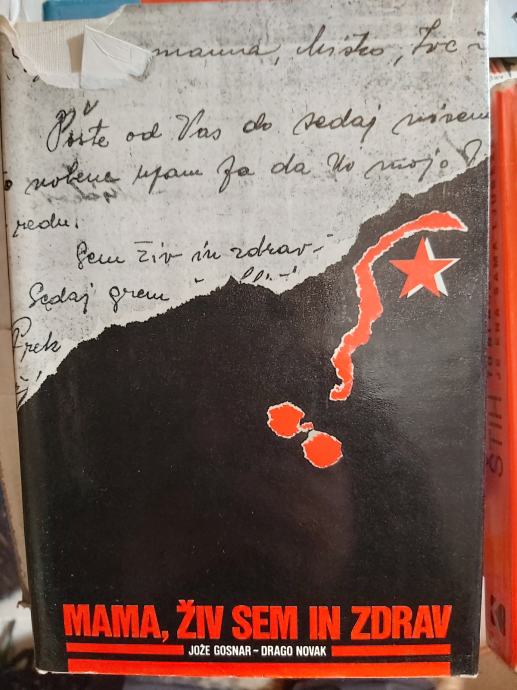 mama, Mirko, Ive
Pošte od Vas do sedaj nisem
nobene upam pa da Vo mojo
redu.
Sem živ in zdrav.
Sedaj grem
Prek
MAMA, ŽIV SEM IN ZDRAV
JOŽE GOSNAR - DRAGO NOVAK